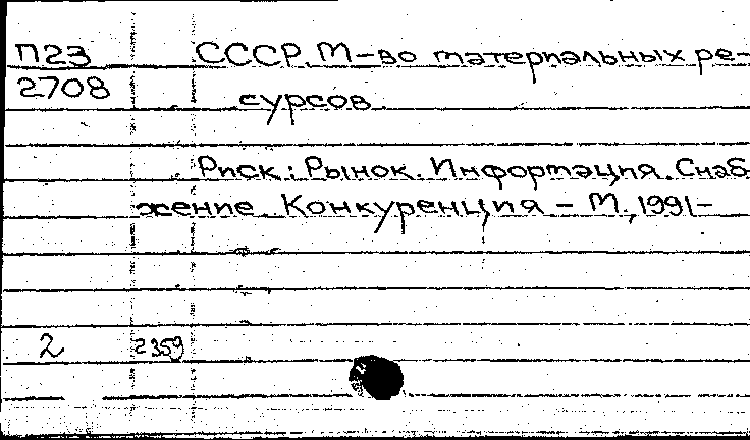 П23 СССР. М-во материальных ре-
2708 сурсов
Риск: Рынок. Информация. Снаб
жение. Конкуренция – М., 1991–
2 2359